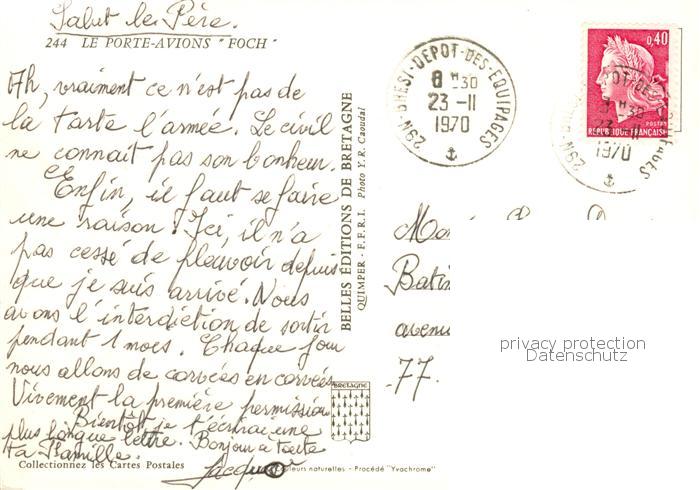 Salut le Père.
244 LE PORTE-AVIONS " FOCH "
Ah, vraiment ce n'est pas de
la tarte l'armée. Le civil
ne connait pas son bonheur.
Enfin, il faut se faire
une raison. Ici, il n'a
pas cessé de pleuvoir depuis
que je suis arrivé. Nous
avons l'interdiction de sortir
pendant 1 mois. Chaque jour
nous allons de corvées en corvées
Vivement la première permission
Bientôt je t'écrirai une
plus longue lettre. Bonjour à toute
ta famille.
Jacques
Collectionnez les Cartes Postales
Couleurs naturelles - Procédé "Yvachrome"
BELLES ÉDITIONS DE BRETAGNE
QUIMPER - F.F.R.I. Photo Y.R. Caoudal
BRETAGNE
29N-BREST-DEPOT-DES-EQUIPAGES
8 H 30
23 - 11
1970
0,40
POSTES
REPUBLIQUE FRANÇAISE
1970
avenue
77.
privacy protection
Datenschutz